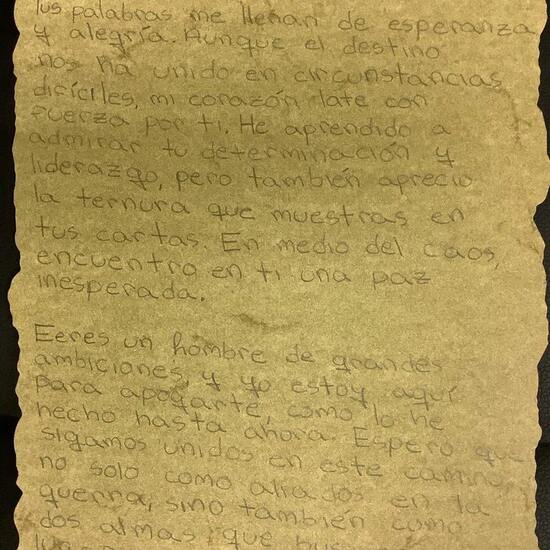 Tus palabras me llenan de esperanza
y alegría. Aunque el destino
nos ha unido en circunstancias
difíciles, mi corazón late con
fuerza por ti. He aprendido a
admirar tu determinación y
liderazgo, pero también aprecio
la ternura que muestras en
tus cartas. En medio del caos,
encuentro en ti una paz
inesperada.
Eeres un hombre de grandes
ambiciones, y yo estoy aquí
para apoyarte, como lo he
hecho hasta ahora. Espero que
sigamos unidos en este camino,
no solo como aliados en la
guerra, sino también como
dos almas que